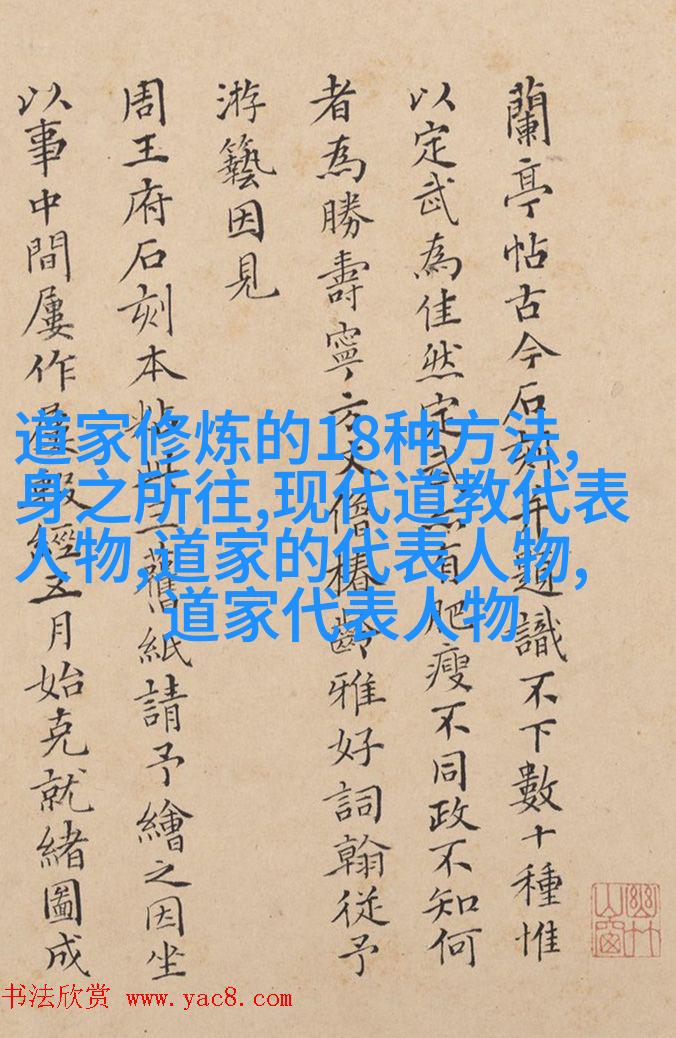 蘭亭帖古今石刻題識不下數十種惟
以定武為佳然定武亦有肥瘦不同政不知何
者為勝壽寧方丈僧椿齡雅好詞翰從予
游藝因見
周王府石刻本舊紙請予繪之因坐
以事中間屢作屢輟經五月始克就緒圖成
幽竹山窗
道家修炼的18种方法,
身之所往,现代道教代表
人物,道家的代表人物,
道家代表人物
书法欣赏 www.yac8.com